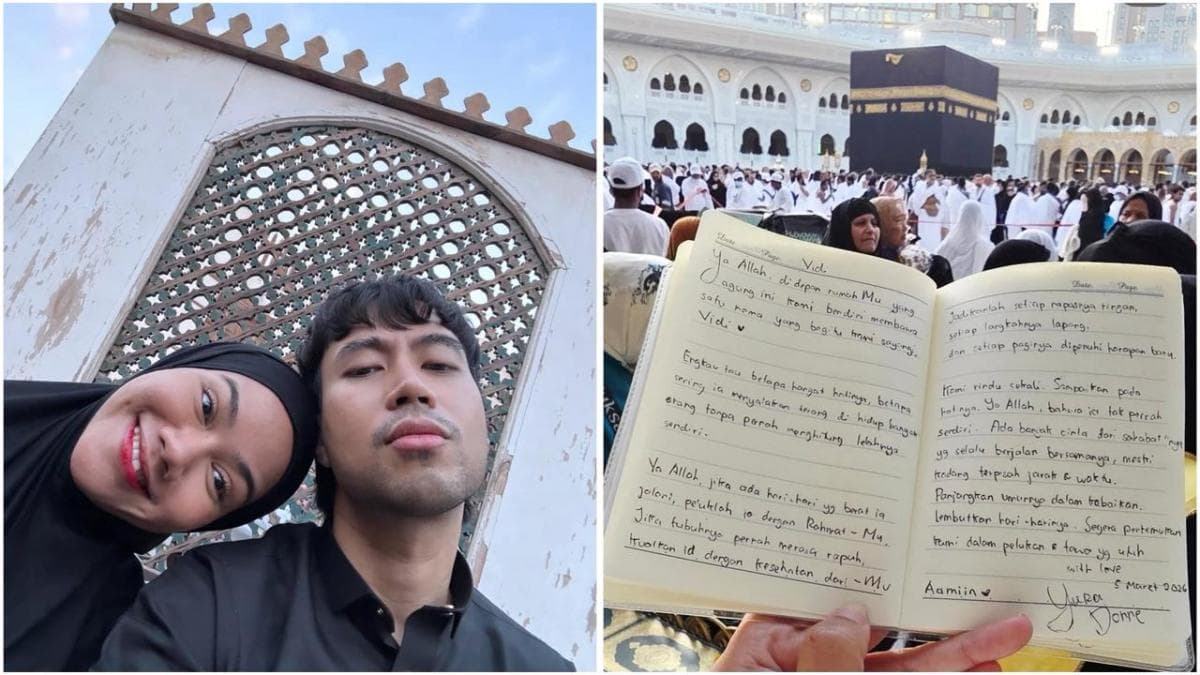 Date. Page.
Vidi
Ya Allah, di depan rumah Mu yang
agung ini kami berdiri membawa
satu nama yang begitu kami sayangi,
Vidi ♥
Engkau tau betapa hangat hatinya, betapa
sering ia menyalakan terang di hidup banyak
orang tanpa pernah menghitung lelahnya
sendiri.
Ya Allah, jika ada hari-hari yg berat ia
jalani, peluklah ia dengan Rahmat-Mu.
Jika tubuhnya pernah merasa rapuh,
kuatkan ia dengan kesehatan dari-Mu
Date. Page.
Jadikanlah setiap napasnya ringan,
setiap langkahnya lapang,
dan setiap paginya dipenuhi harapan baru.
Kami rindu sekali. Sampaikan pada
hatinya, Ya Allah, bahwa ia tak pernah
sendiri. Ada banyak cinta dari sahabat"nya
yg selalu berjalan bersamanya, meski
kadang terpisah jarak & waktu.
Panjangkan umurnya dalam kebaikan.
Lembutkan hari-harinya. Segera pertemukan
kami dalam pelukan & tawa yg utuh
with love
5 Maret 2026
Aamiin ♥
Yura
Donne